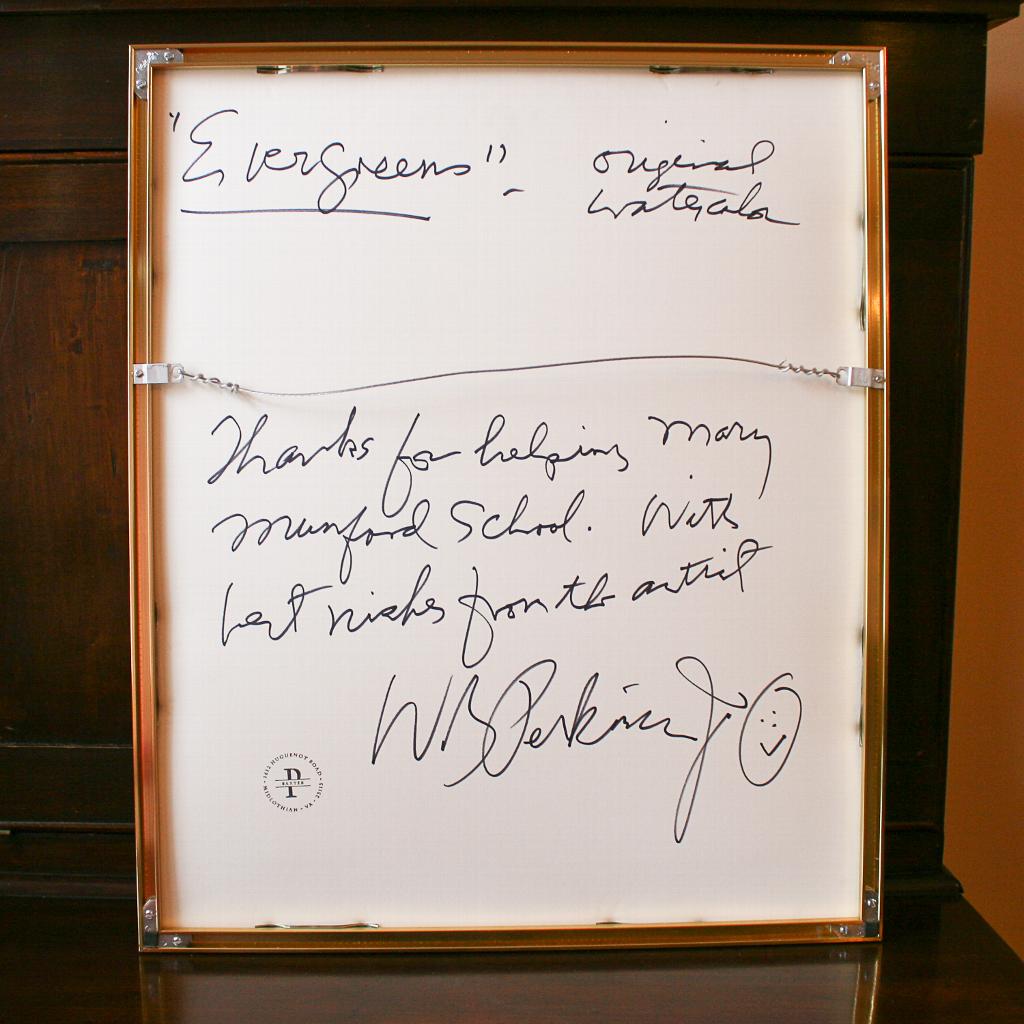 "Evergreens" - original
watercolor
Thanks for helping Mary
Munford School. With
best wishes from the artist
WB Perkins Jr
P
BAXTER
HUGUENOT ROAD
MIDLOTHIAN • VA •